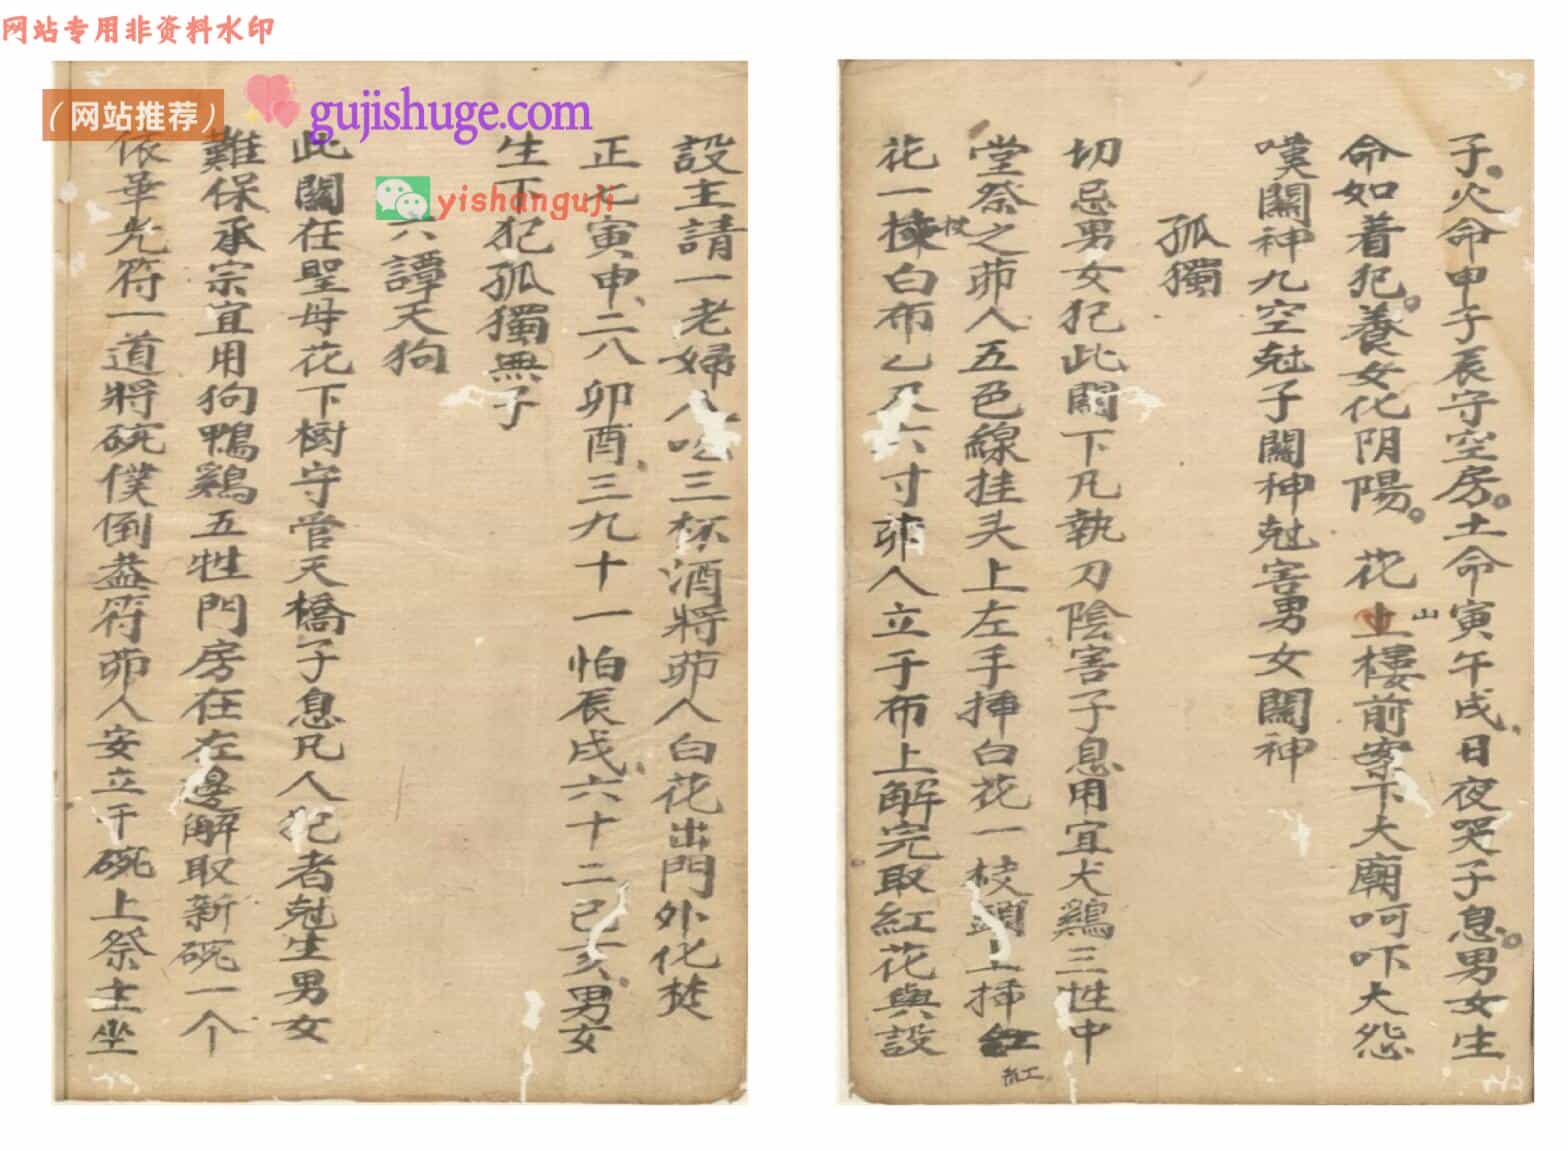 网站专用非资料水印
(网站推荐)
gujishuge.com
yishanguji
子火命申子辰守空房土命寅午戌日夜哭子息男女生
命如着犯養女化阴陽 花山樓前案下大廟呵吓大怨
嘆關神九空尅子關神尅害男女關神
孤獨
切忌男女犯此關下凡執刀陰害子息用宜犬鷄三牲中
堂祭之茆人五色線挂头上左手挿白花一枝頭上挿紅
花一枝白布乙尺六寸茆人立于布上解完取紅花與設
設主請一老婦人吃三杯酒將茆人白花出門外化焚
正七寅申二八卯酉三九十一怕辰戌六十二己亥男女
生下犯孤獨無子
六譚天狗
此關在聖母花下樹守管天橋子息凡人犯者尅生男女
難保承宗宜用狗鴨鷄五牲門房在左邊解取新碗一个
依華光符一道將碗僕倒盖符茆人安立于碗上祭主坐